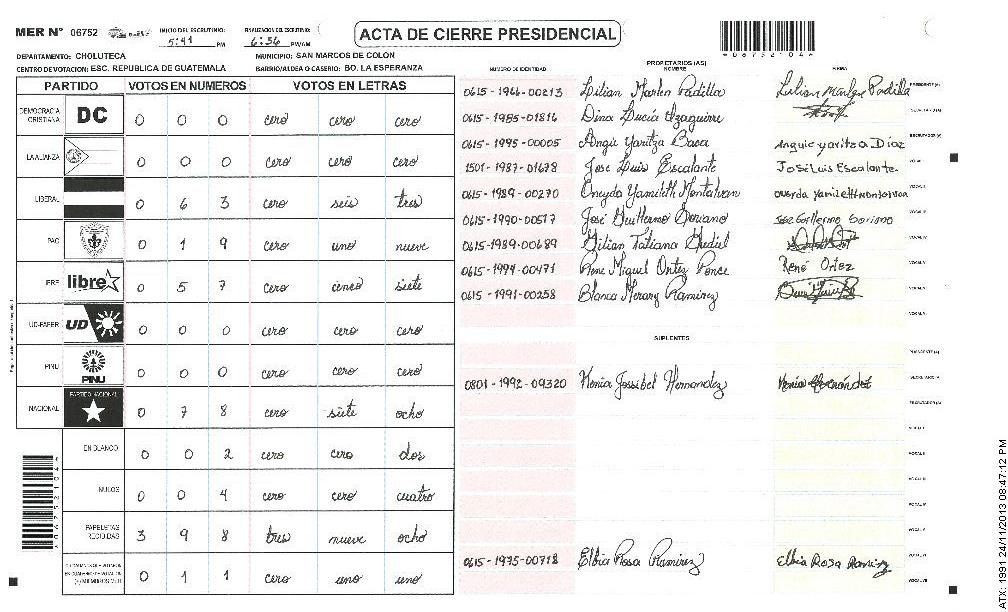 MER N° 06752 INICIO DEL ESCRUTINIO: 5:41 PM FINALIZACION DEL ESCRUTINIO: 6:56 PM/AM ACTA DE CIERRE PRESIDENCIAL
DEPARTAMENTO: CHOLUTECA MUNICIPIO: SAN MARCOS DE COLON
CENTRO DE VOTACION: ESC. REPUBLICA DE GUATEMALA BARRIO/ALDEA O CASERIO: BO. LA ESPERANZA
PARTIDO VOTOS EN NUMEROS VOTOS EN LETRAS
DEMOCRACIA CRISTIANA DC 0 0 0 cero cero cero
LA ALIANZA 0 0 0 cero cero cero
LIBERAL 0 6 3 cero seis tres
PAC 0 1 9 cero uno nueve
libre 0 5 7 cero cinco siete
UD-FAPER UD 0 0 0 cero cero cero
PINU PINU 0 0 0 cero cero cero
NACIONAL PARTIDO NACIONAL 0 7 8 cero siete ocho
EN BLANCO 0 0 2 cero cero dos
NULOS 0 0 4 cero cero cuatro
PAPELETAS RECIBIDAS 3 9 8 tres nueve ocho
0 1 1 cero uno uno
NUMERO DE IDENTIDAD PROPIETARIOS (AS) NOMBRE FIRMA
0615-1966-00213 Lilian Marlen Padilla Lilian Marlen Padilla PRESIDENTE (A)
0615-1985-01816 Dina Lucia Izaguirre SECRETARIO (A)
0615-1995-00005 Angie Yaritza Baca Anguie yaritza Díaz ESCRUTADOR (A)
1501-1987-01678 Jose Luis Escalante José Luis Escalante VOCAL I
0615-1989-00270 Oneyda Yamileth Montalvan VOCAL II
0615-1990-00517 José Guillermo Soriano Jose Guillermo Soriano VOCAL III
0615-1989-00689 Lilian Tatiana Gudiel VOCAL IV
0615-1994-00471 Rene Miguel Ortez Ponce René Ortez VOCAL V
0615-1991-00258 Blanca Merary Ramirez VOCAL VI
VOCAL VII
SUPLENTES
PRESIDENTE (A)
0801-1992-09320 Kenia Jossibel Hernandez Kenia Hernández SECRETARIO A
ESCRUTADOR (A)
VOCAL I
VOCAL II
VOCAL III
VOCAL IV
VOCAL V
0615-1975-00718 Elbia Rosa Ramirez Elbia Rosa Ramirez VOCAL VI
VOCAL VII
ATX: 1991 24/11/2013 08:47:12 PM